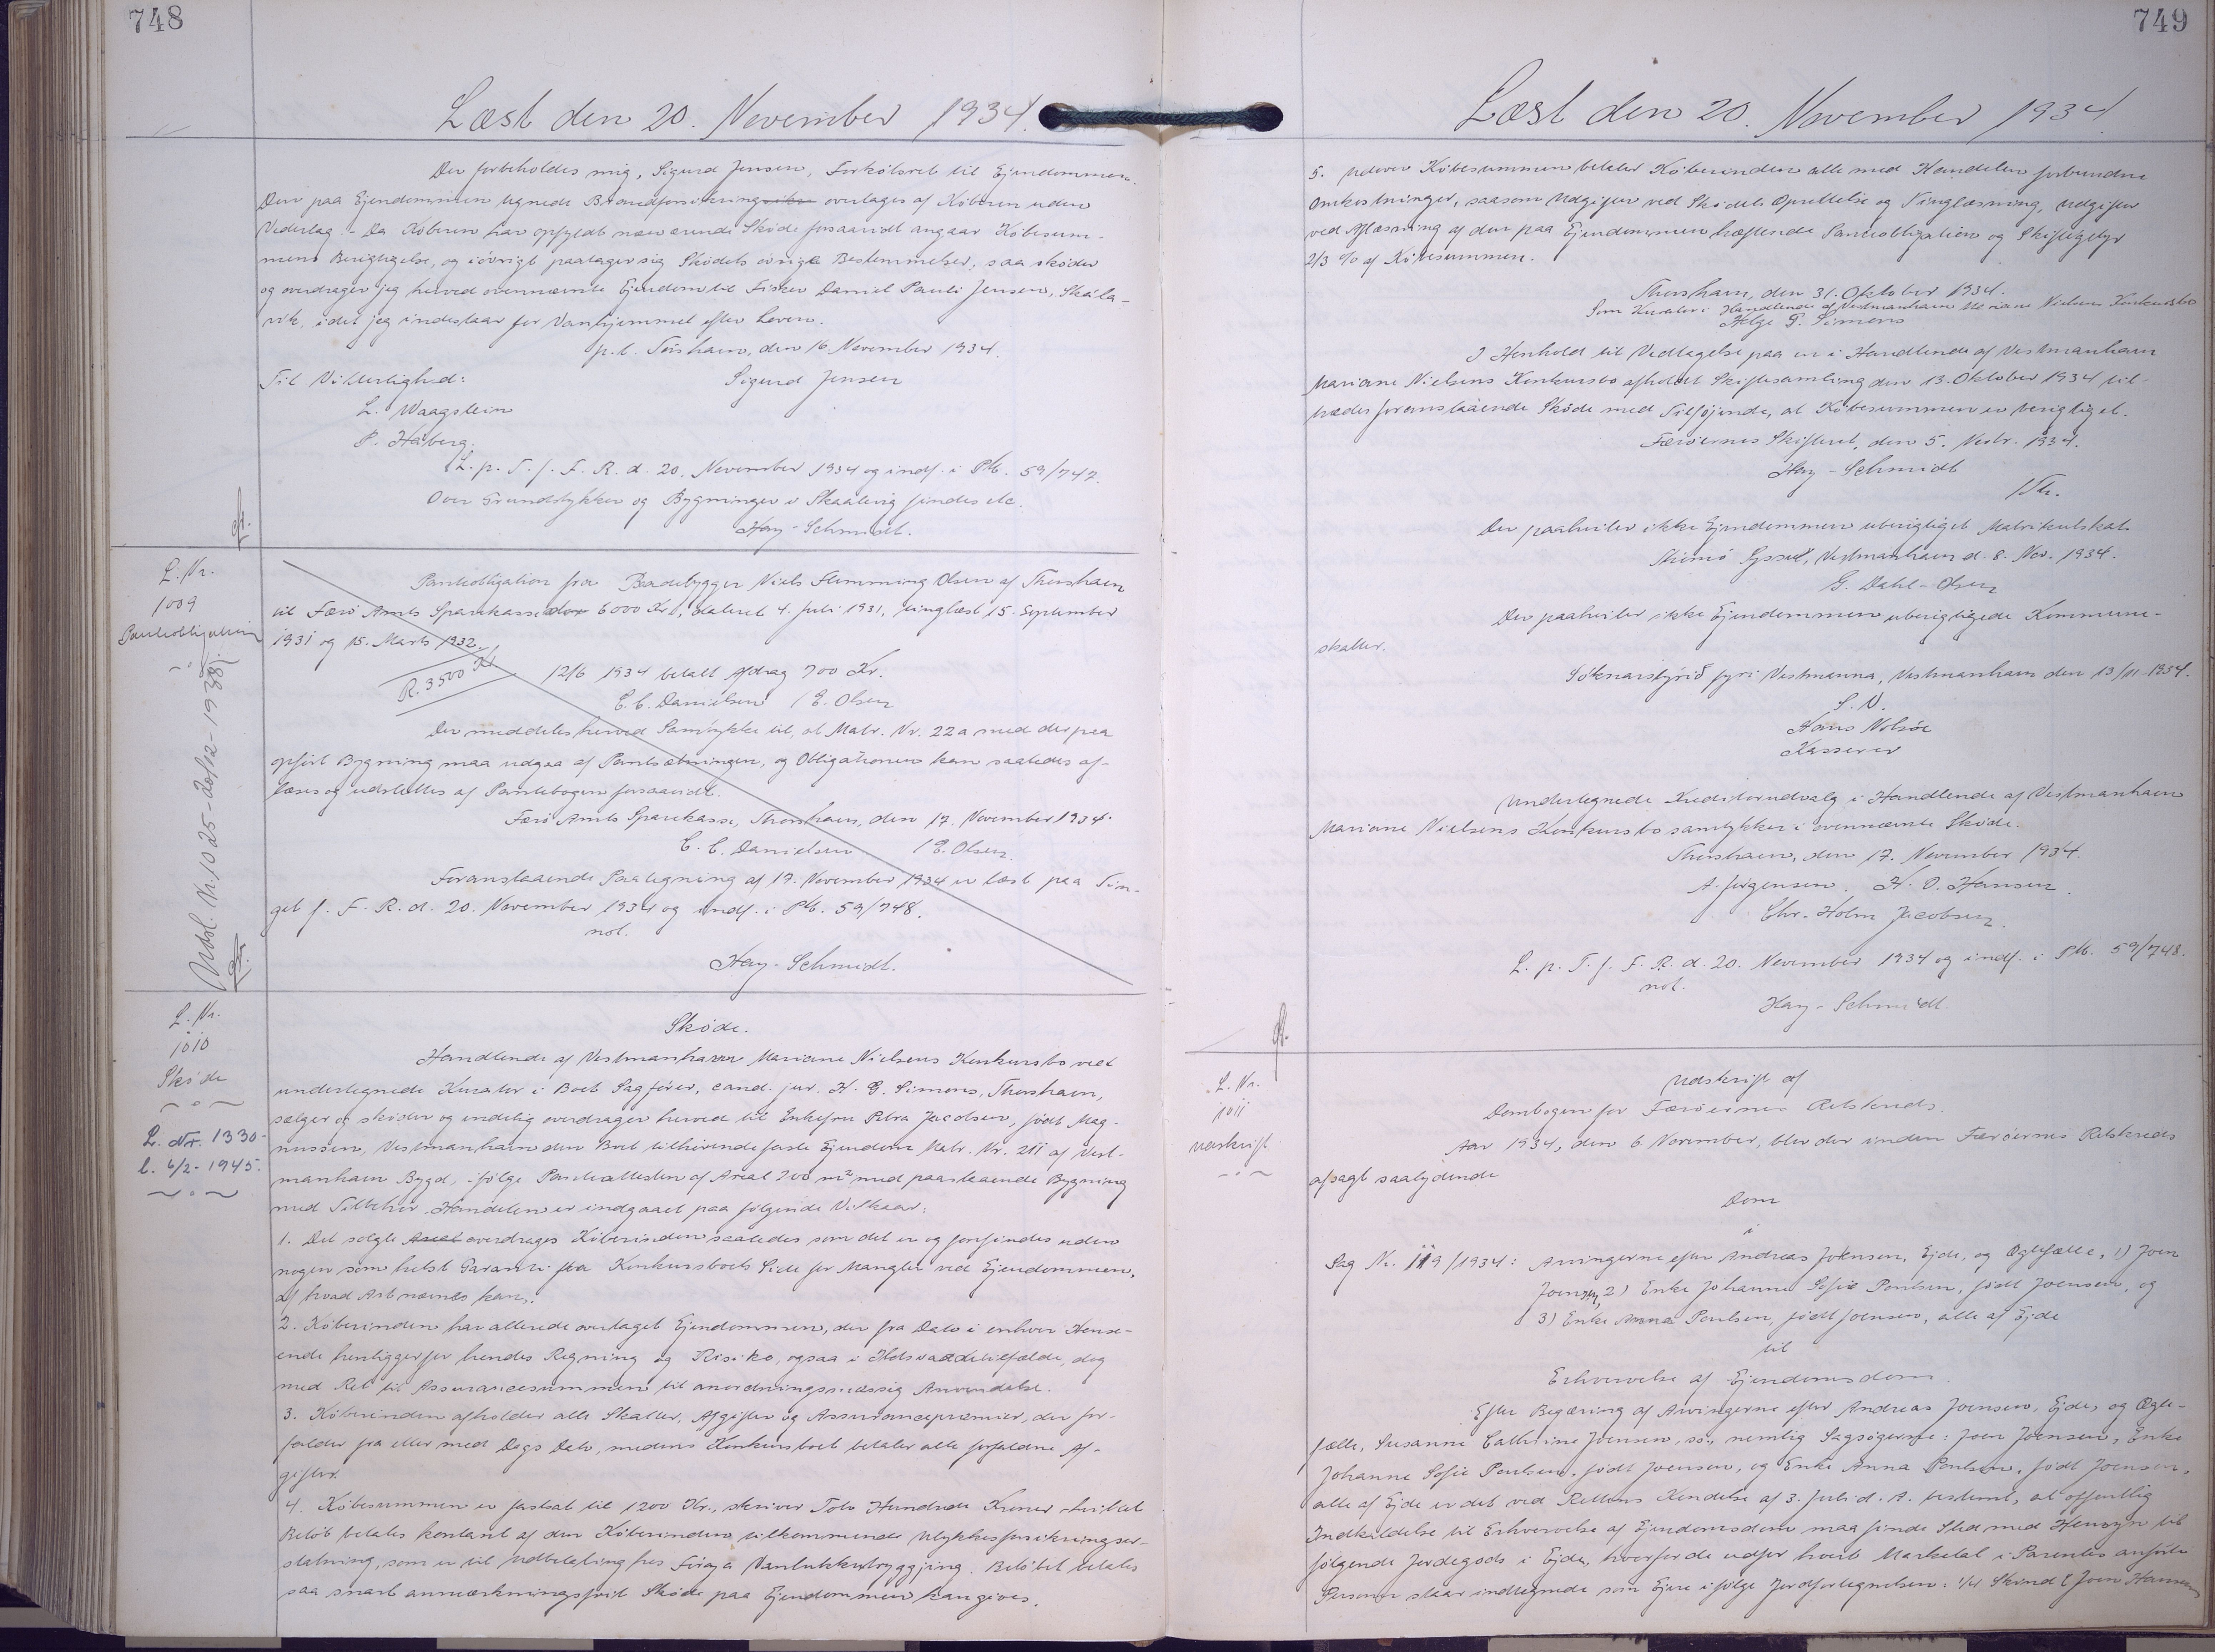 748
Læst den 20. November 1934.
Der forbeholdes mig, Sigurd Jensen, Forkøbsret til Ejendommen.
Den paa Ejendommen tegnede Brandforsikring overtages af Køberen uden
Vederlag. - Da Køberen har opfyldt nærværende Skøde forsaavidt angaar Købesum-
mens Berigtigelse, og iøvrigt paatager sig Skødets øvrige Bestemmelser, saa skøder
og overdrager jeg herved ovennævnte Ejendom til Fisker Daniel Pauli Jensen, Skála-
vik, idet jeg indestaar for Vanhjemmel efter Loven.
p.t. Tórshavn, den 16. November 1934.
Til Vitterlighed: Sigurd Jensen
L. Waagstein
P. Háberg.
L. p. T. f. F. R. d. 20. November 1934 og indf. i Ptb. 59/747.
Over Grundstykker og Bygninger i Skaalevig findes etc.
Hay-Schmidt.
L. Nr.
1009
Panteobligation
Udsl. Nr. 1025 - 20/12 - 1938
Panteobligation fra Baadebygger Niels Flemming Olsen af Thorshavn
til Færø Amts Sparekasse stor 6000 Kr., dateret 4. Juli 1931, tinglæst 15. September
1931 og 15. Marts 1932.
R. 3500 Kr. 12/6 1934 betalt Afdrag 700 Kr.
C. C. Danielsen / E. Olsen
Der meddeles herved Samtykke til, at Matr. Nr. 22a med derpaa
opført Bygning maa udgaa af Pantsætningen, og Obligationen kan saaledes af-
læses og udslettes af Pantebogen forsaavidt.
Færø Amts Sparekasse, Thorshavn, den 17. November 1934.
C. C. Danielsen / E. Olsen.
Foranstaaende Paategning af 17. November 1934 er læst paa Tin-
get f. F. R. d. 20. November 1934 og indf. i Ptb. 59/748.
not.
Hay-Schmidt.
L. Nr.
1010
Skøde
L. Nr. 1330-
l. 6/2-1945.
Skøde.
Handlende af Vestmanhavn Mariane Nielsens Konkursbo ved
undertegnede Kurator i Boet Sagfører, cand. jur. H. G. Simons, Thorshavn,
sælger og skøder og endelig overdrager herved til Enkefru Petra Jacobsen, født Mag-
nussen, Vestmanhavn den Boet tilhørende faste Ejendom Matr. Nr. 211 af Vest-
manhavn Bygd, ifølge Panteattesten af Areal 200 m² med paastaaende Bygning
med Tilbehør. Handelen er indgaaet paa følgende Vilkaar:
1. Det solgte overdrages Køberinden saaledes som det er og forefindes uden
nogen som helst Garanti fra Konkursboets Side for Mangler ved Ejendommen,
af hvad Art nævnes kan.
2. Køberinden har allerede overtaget Ejendommen, der fra Dato i enhver Hense-
ende henligger for hendes Regning og Risiko, ogsaa i Ildsvaadetilfælde, dog
med Ret til Assurancesummen til anordningsmæssig Anvendelse.
3. Køberinden afholder alle Skatter, Afgifter og Assurancepræmier, der for-
falder fra eller med Dags Dato, medens Konkursboet betaler alle forfaldne Af-
gifter.
4. Købesummen er fastsat til 1200 Kr., skriver Tolv Hundrede Kroner - hvilket
Beløb betales kontant af den Køberinden tilkommende Ulykkesforsikringser-
statning, som er til Udbetaling hos Føroya Vanlukkutryggjing. Beløbet betales
saa snart anmærkningsfrit Skøde paa Ejendommen kan gives.
749
Læst den 20. November 1934.
5. Udover Købesummen betaler Køberinden alle med Handelen forbundne
Omkostninger, saasom Udgifter ved Skødets Oprettelse og Tinglæsning, Udgifter
ved Aflæsning af den paa Ejendommen hæftende Panteobligation og Skiftegebyr
2/3 % af Købesummen.
Thorshavn, den 31. Oktober 1934.
Som Kurator i Handlende af Vestmanhavn Mariane Nielsens Konkursbo
Helge G. Simons
I Henhold til Vedtagelse paa en i Handlende af Vestmanhavn
Mariane Nielsens Konkursbo afholdt Skiftesamling den 13. Oktober 1934 til-
trædes foranstaaende Skøde med Tilføjende, at Købesummen er berigtiget.
Færøernes Skifteret, den 5. Novbr. 1934.
Hay-Schmidt
/Th.
Der paahviler ikke Ejendommen uberigtiget Matrikulskat.
Strømø Syssel, Vestmanhavn d. 8. Nov. 1934.
G. Dahl-Olsen
Der paahviler ikke Ejendommen uberigtigede Kommune-
skatter.
Sóknarstýrið fyri Vestmanna, Vestmanhavn den 13/11 1934.
S. V.
Hans Nolsøe
Kasserer
Undertegnede Kreditorudvalg i Handlende af Vestmanhavn
Mariane Nielsens Konkursbo samtykker i ovennævnte Skøde.
Thorshavn, den 17. November 1934.
A. Jørgensen. H. O. Hansen.
Chr. Holm Jacobsen.
L. p. T. f. F. R. d. 20. November 1934 og indf. i Ptb. 59/748.
not.
Hay-Schmidt.
L. Nr.
1011
Udskrift
Udskrift af
Dombogen for Færøernes Retskreds.
Aar 1934, den 6 November, blev der inden Færøernes Retskreds
afsagt saalydende
Dom
i
Sag Nr. 119/1934: Arvingerne efter Andreas Joensen, Ejde, og Ægtefælle, 1) Joen
Joensen, 2) Enke Johanne Sofie Poulsen, født Joensen, og
3) Enke Anna Poulsen, født Joensen, alle af Ejde
til
Erhvervelse af Ejendomsdom.
Efter Begæring af Arvingerne efter Andreas Joensen, Ejde, og Ægte-
fælle, Susanne Cathrine Joensen, nemlig Sagsøgerne: Joen Joensen, Enke
Johanne Sofie Poulsen, født Joensen, og Enke Anna Poulsen, født Joensen,
alle af Ejde er det ved Rettens Kendelse af 3. Juli d. A. bestemt, at offentlig
Indkaldelse til Erhvervelse af Ejendomsdom maa finde Sted med Hensyn til
følgende Jordegods i Ejde, hvorfor de udfor hvert Marketal i Parentes anførte
Personer staar indtegnede som Ejere ifølge Jordfortegnelsen: 1/4 Skind (Joen Hansen